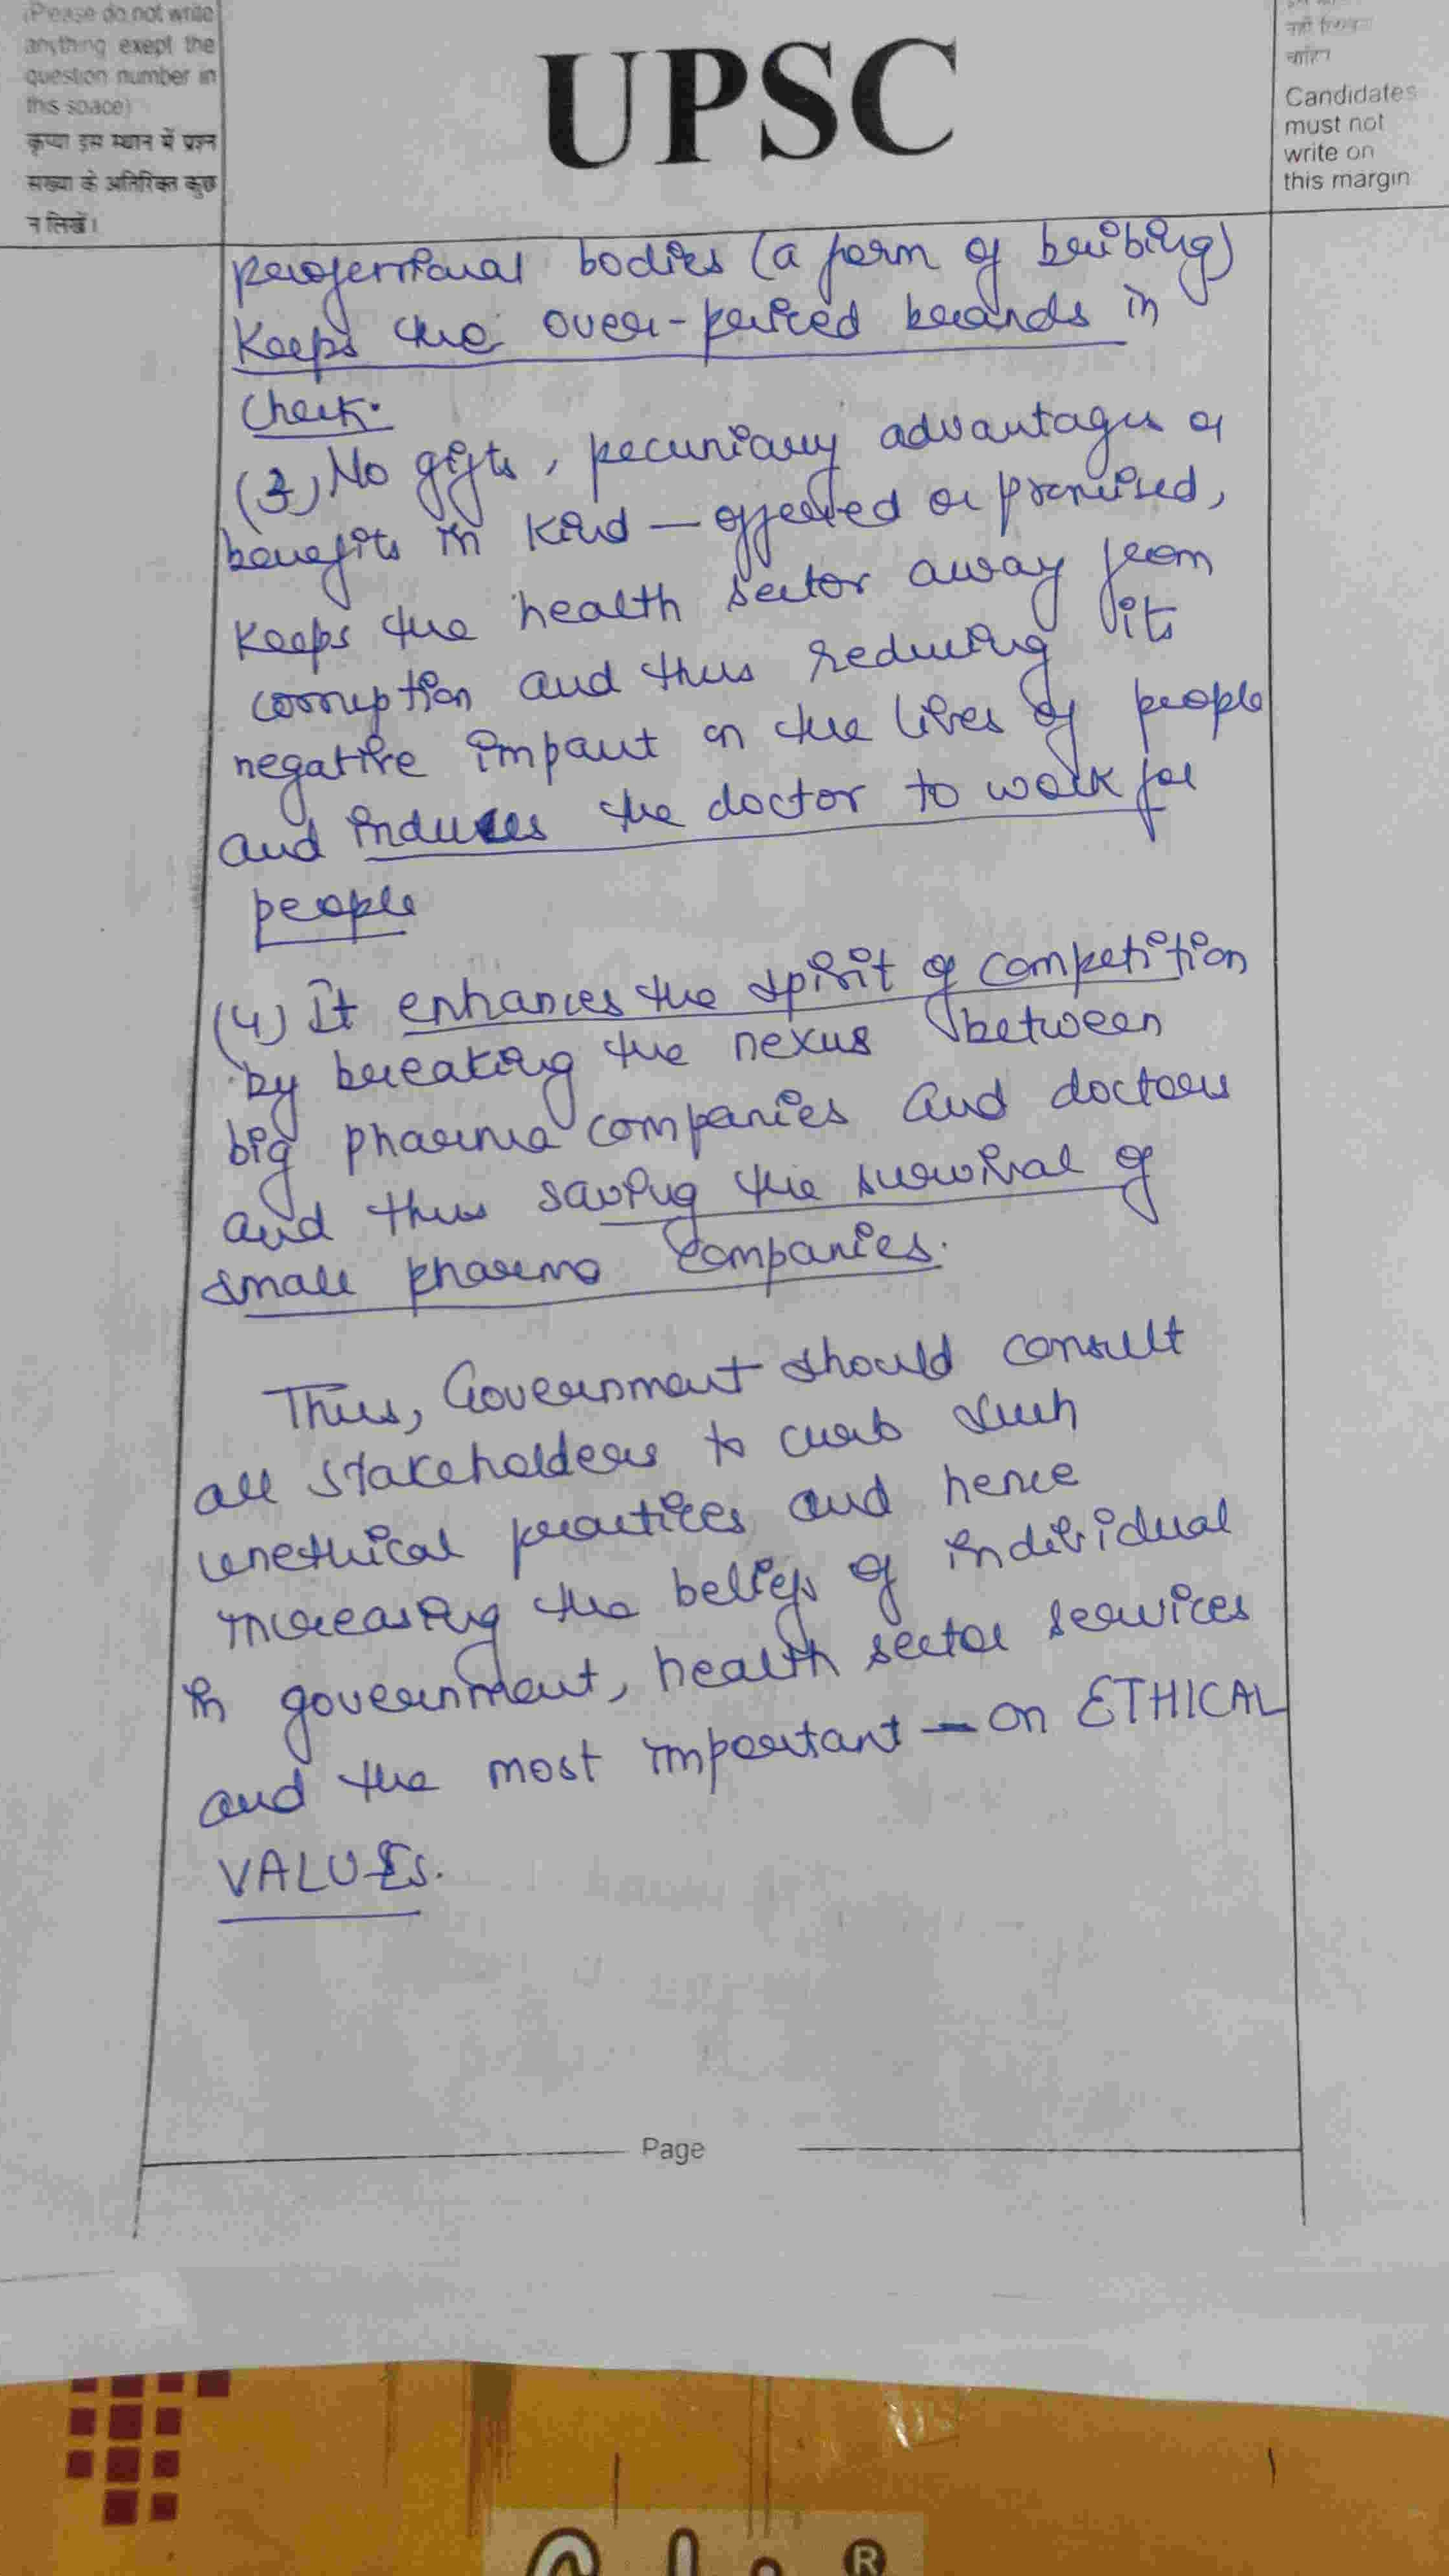 (Please do not write
anything exept the
question number in
this space)
कृपया इस स्थान में प्रश्न
संख्या के अतिरिक्त कुछ
न लिखें।
UPSC
चाहिए
Candidates
must not
write on
this margin
professional bodies (a form of bribing)
keeps the over-priced brands in
check.
(3) No gifts, pecuniary advantages or
benefits in kind — offered or promised,
keeps the health sector away from
corruption and thus reducing its
negative impact on the lives of people
and induces the doctor to work for
people
(4) It enhances the spirit of competition
by breaking the nexus between
big pharma companies and doctors
and thus saving the survival of
small pharma companies.
Thus, Government should consult
all stakeholders to curb such
unethical practices and hence
increasing the beliefs of individual
in government, health sector services
and the most important — on ETHICAL
VALUES.
Page
®